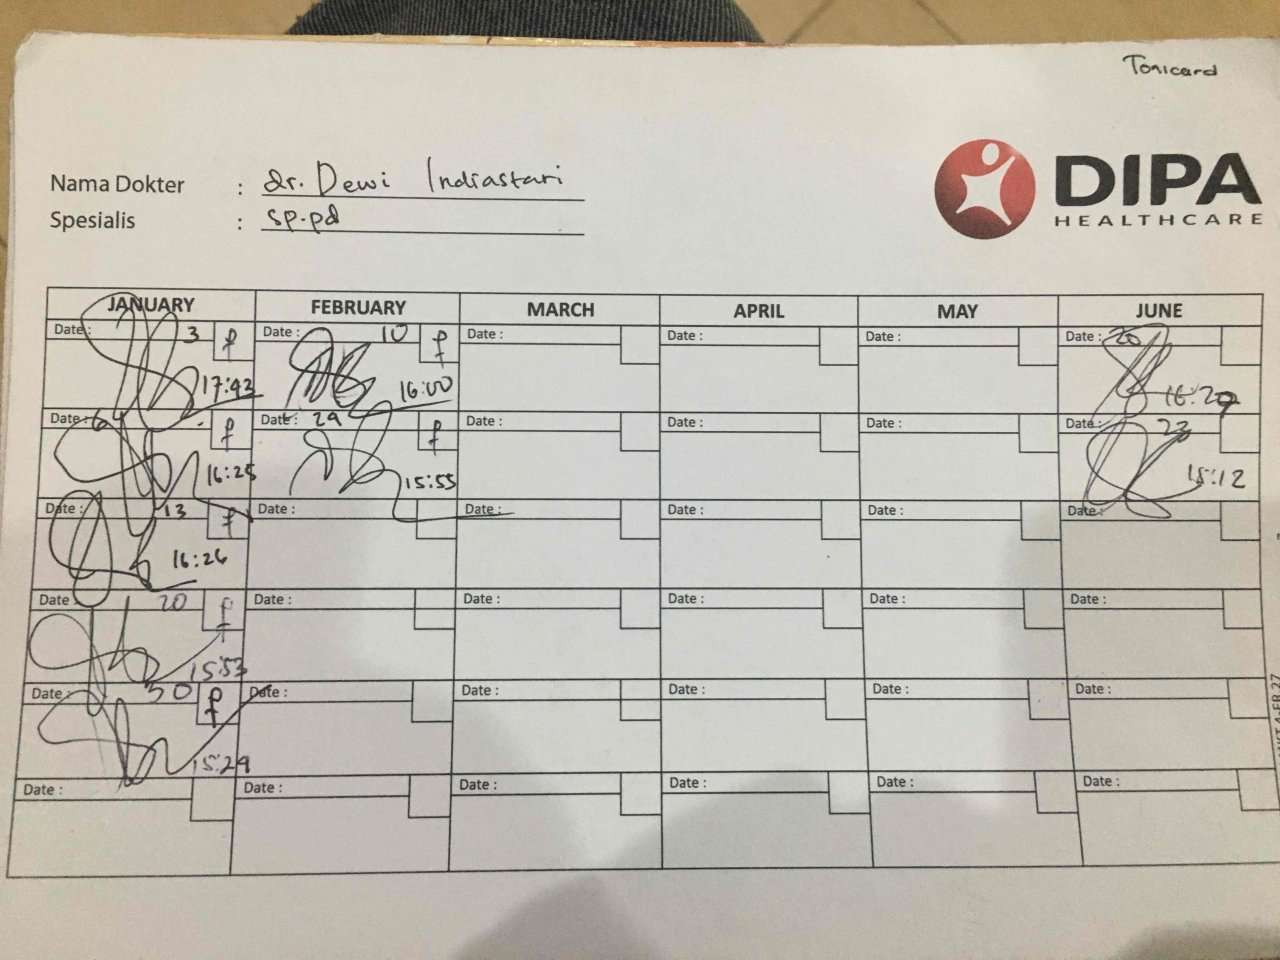 Tonicard
DIPA
HEALTHCARE
Nama Dokter : dr. Dewi Indiastari
Spesialis : sp.pd
JANUARY FEBRUARY MARCH APRIL MAY JUNE
Date : 3 f Date : 10 f Date : Date : Date : Date : 20
17:43 16:00 16:29
Date : 6 f Date : 29 f Date : Date : Date : Date : 23
16:25 15:55 15:12
Date : 13 f Date : Date : Date : Date : Date :
16:26
Date : 20 f Date : Date : Date : Date : Date :
15:53
Date : 30 f Date : Date : Date : Date : Date :
15:29
Date : Date : Date : Date : Date : Date :